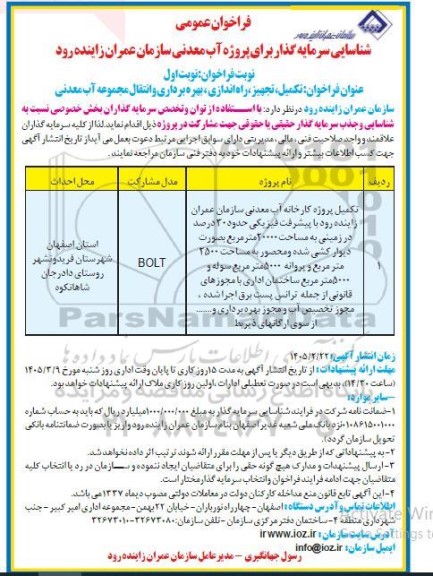 فراخوان عمومی
شناسایی سرمایه گذار برای پروژه آب معدنی سازمان عمران زاینده رود
نوبت فراخوان: نوبت اول
عنوان فراخوان: تکمیل، تجهیز، راه اندازی، بهره برداری و انتقال مجموعه آب معدنی
سازمان عمران زاینده رود در نظر دارد: با استفاده از توان و تخصص سرمایه گذاران بخش خصوصی نسبت به
شناسایی و جذب سرمایه گذار حقیقی یا حقوقی جهت مشارکت در پروژه ذیل اقدام نماید. لذا از کلیه سرمایه گذاران
علاقمند و واجد صلاحیت فنی، مالی، مدیریتی دارای سوابق اجرایی مرتبط دعوت بعمل می آید از تاریخ انتشار آگهی
جهت کسب اطلاعات بیشتر و ارائه پیشنهادات خود به دفتر فنی سازمان مراجعه نمایند.
ردیف نام پروژه مدل مشارکت محل احداث
۱
تکمیل پروژه کارخانه آب معدنی سازمان عمران
زاینده رود با پیشرفت فیزیکی حدود ۳۰ درصد
در زمینی به مساحت ۲۰۰۰۰ متر مربع بصورت
دیوار کشی شده و محصور به مساحت ۲۵۰۰
متر مربع و پروانه ۵۰۰۰ متر مربع سوله و
۵۰۰۰ متر مربع ساختمان اداری با مجوزهای
قانونی از جمله ترانس پست برق اجرا شده،
مجوز تخصیص آب و مجوز بهره برداری و......
از سوی ارگانهای ذیربط
BOLT
استان اصفهان
شهرستان فریدونشهر
روستای دادرجان
شاهانکوه
زمان انتشار آگهی: ۱۴۰۵/۲/۲۲
مهلت ارائه پیشنهادات: از تاریخ انتشار آگهی به مدت ۱۵ روز کاری تا پایان وقت اداری روز شنبه مورخ ۱۴۰۵/۳/۹
(ساعت ۱۴/۳۰)، بدیهی است در صورت تعطیلی ادارات، اولین روز کاری ملاک ارائه پیشنهادات خواهد بود.
سایر موارد:
۱- ضمانت نامه شرکت در فرایند شناسایی سرمایه گذار به مبلغ ۱/۰۰۰/۰۰۰/۰۰۰ میلیارد ریال که باید به حساب شماره
نزد بانک ملی شعبه غدیر اصفهان بنام سازمان عمران زاینده رود واریز یا بصورت ضمانتنامه بانکی
تحویل سازمان گردد.
۲- به پیشنهاداتی که از طریق دیگر یا پس از مهلت مقرر ارائه شوند ترتیب اثر داده نخواهد شد.
۳- ارسال پیشنهادات و مدارک هیچ گونه حقی را برای متقاضیان ایجاد ننموده و سازمان در رد یا انتخاب کلیه
متقاضیان جهت ادامه فرایند فراخوان و انتخاب سرمایه گذار مختار است.
۴- این آگهی تابع قانون منع مداخله کارکنان دولت در معاملات دولتی مصوب دیماه ۱۳۳۷ می باشد.
اطلاعات تماس و آدرس دستگاه: اصفهان - چهارراه نورباران - خیابان ۲۲ بهمن - مجموعه اداری امیر کبیر - جنب
شهرداری منطقه ۴ - ساختمان دفتر مرکزی سازمان - تلفن سازمان: ۳۲۶۷۳۰۸۰-۳۲۶۷۳۰۱۰
آدرس سایت سازمان: www.ioz.ir
ایمیل سازمان: info@ioz.ir
رسول جهانگیری - مدیرعامل سازمان عمران زاینده رود
ParsNamadData